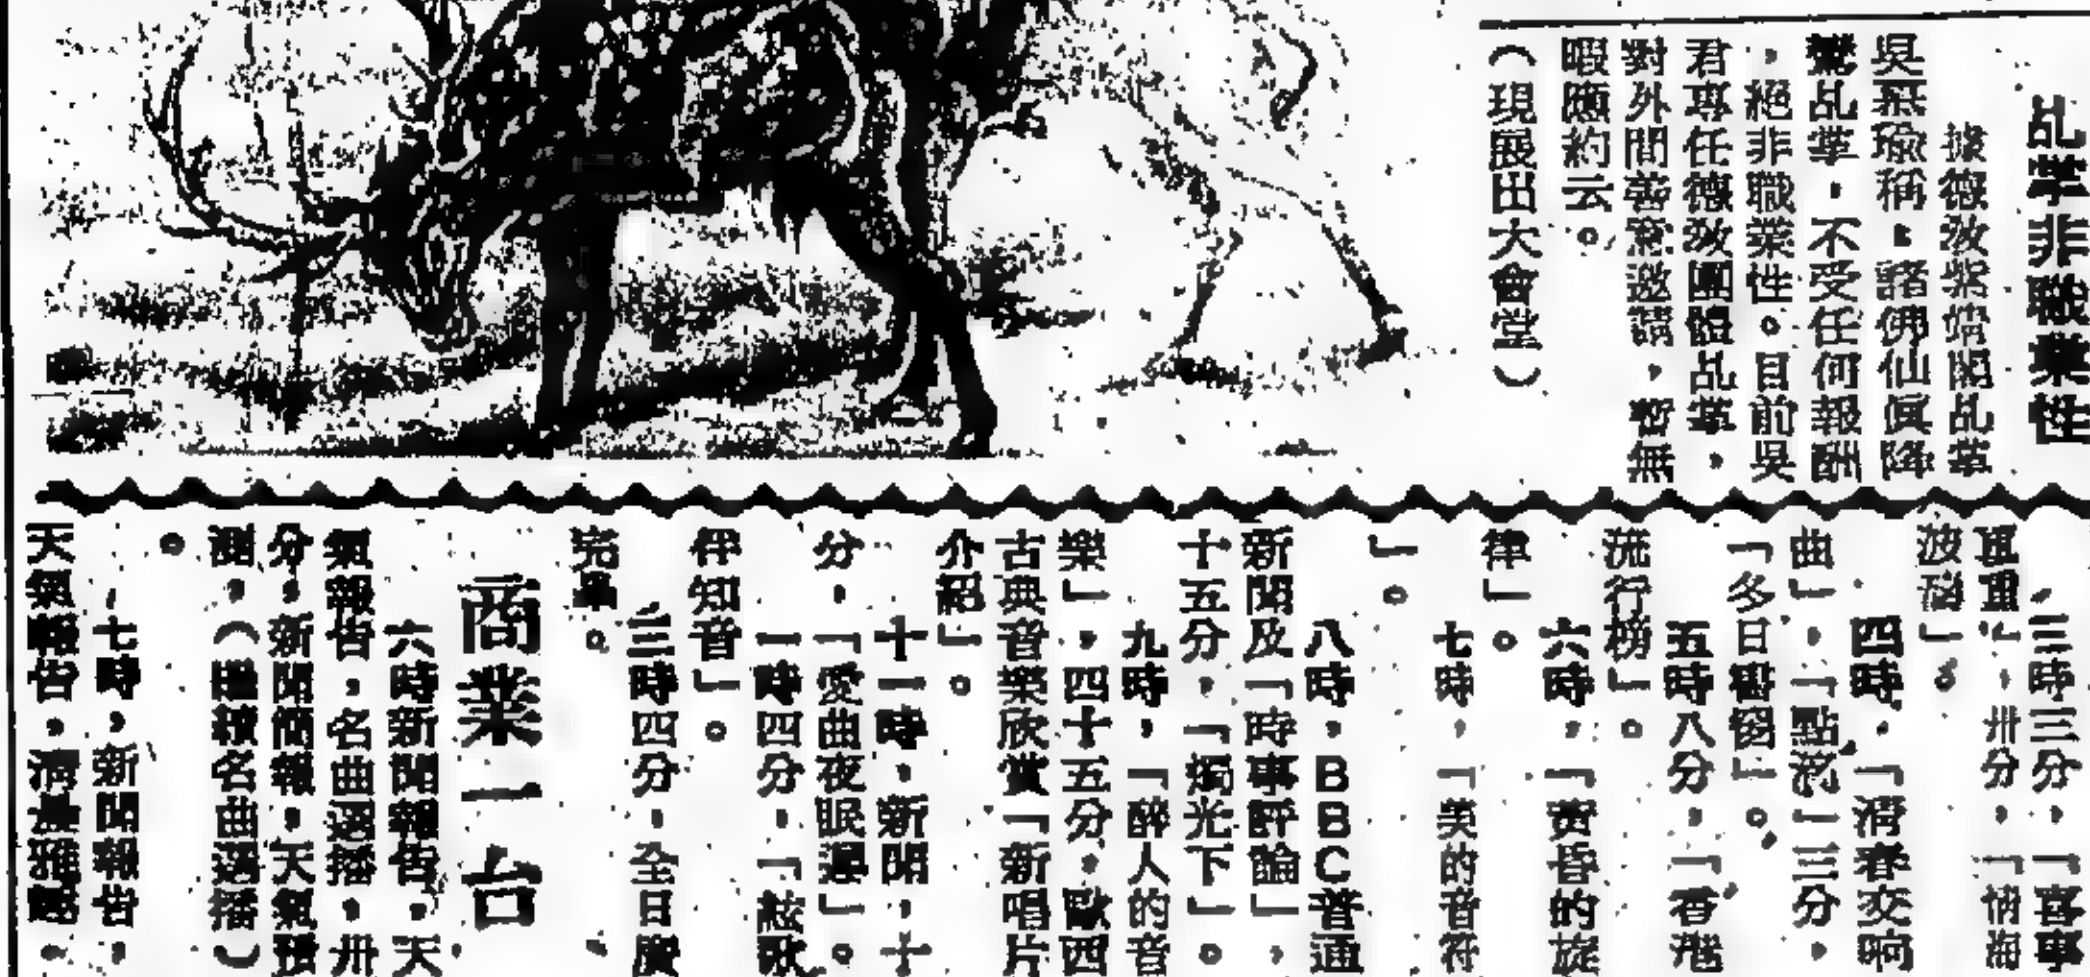 乩掌非職業性
據德敎紫靖閣乩掌
吳無瑜稱：諸佛仙眞降
鸞乩掌，不受任何報酬
，絕非職業性。目前吳
君專任德敎團體乩掌，
對外間善意邀請，暫無
暇應約云。
（現展出大會堂）
三時三分，「喜事
重重」，卅分，「情海
波濤」。
四時，「淸春交响
曲」，「點滴」三分，
「多日」。
五時八分，「香港
流行榜」。
六時，「黃昏的旋
律」。
七時，「美的音符
」。
八時，BBC普通
新聞及「時事評論」，
十五分，「燭光下」。
九時，「醉人的音
樂」，四十五分，歐西
古典音樂欣賞「新唱片
介紹」。
十一時，新聞，十
分，「愛曲夜眠遲」。
一時四分，「絃歌
伴知音」。
三時四分，全日廣
完畢。
商業一台
六時新聞報告，天
氣報告，名曲選播，卅
分，新聞簡報，天氣預
測，（繼續名曲選播）
。
七時，新聞報告，
天氣報告，淸晨雅聽。